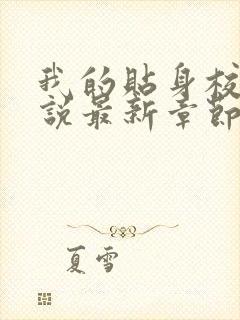 我的貼身校
說最新章節
夏雪